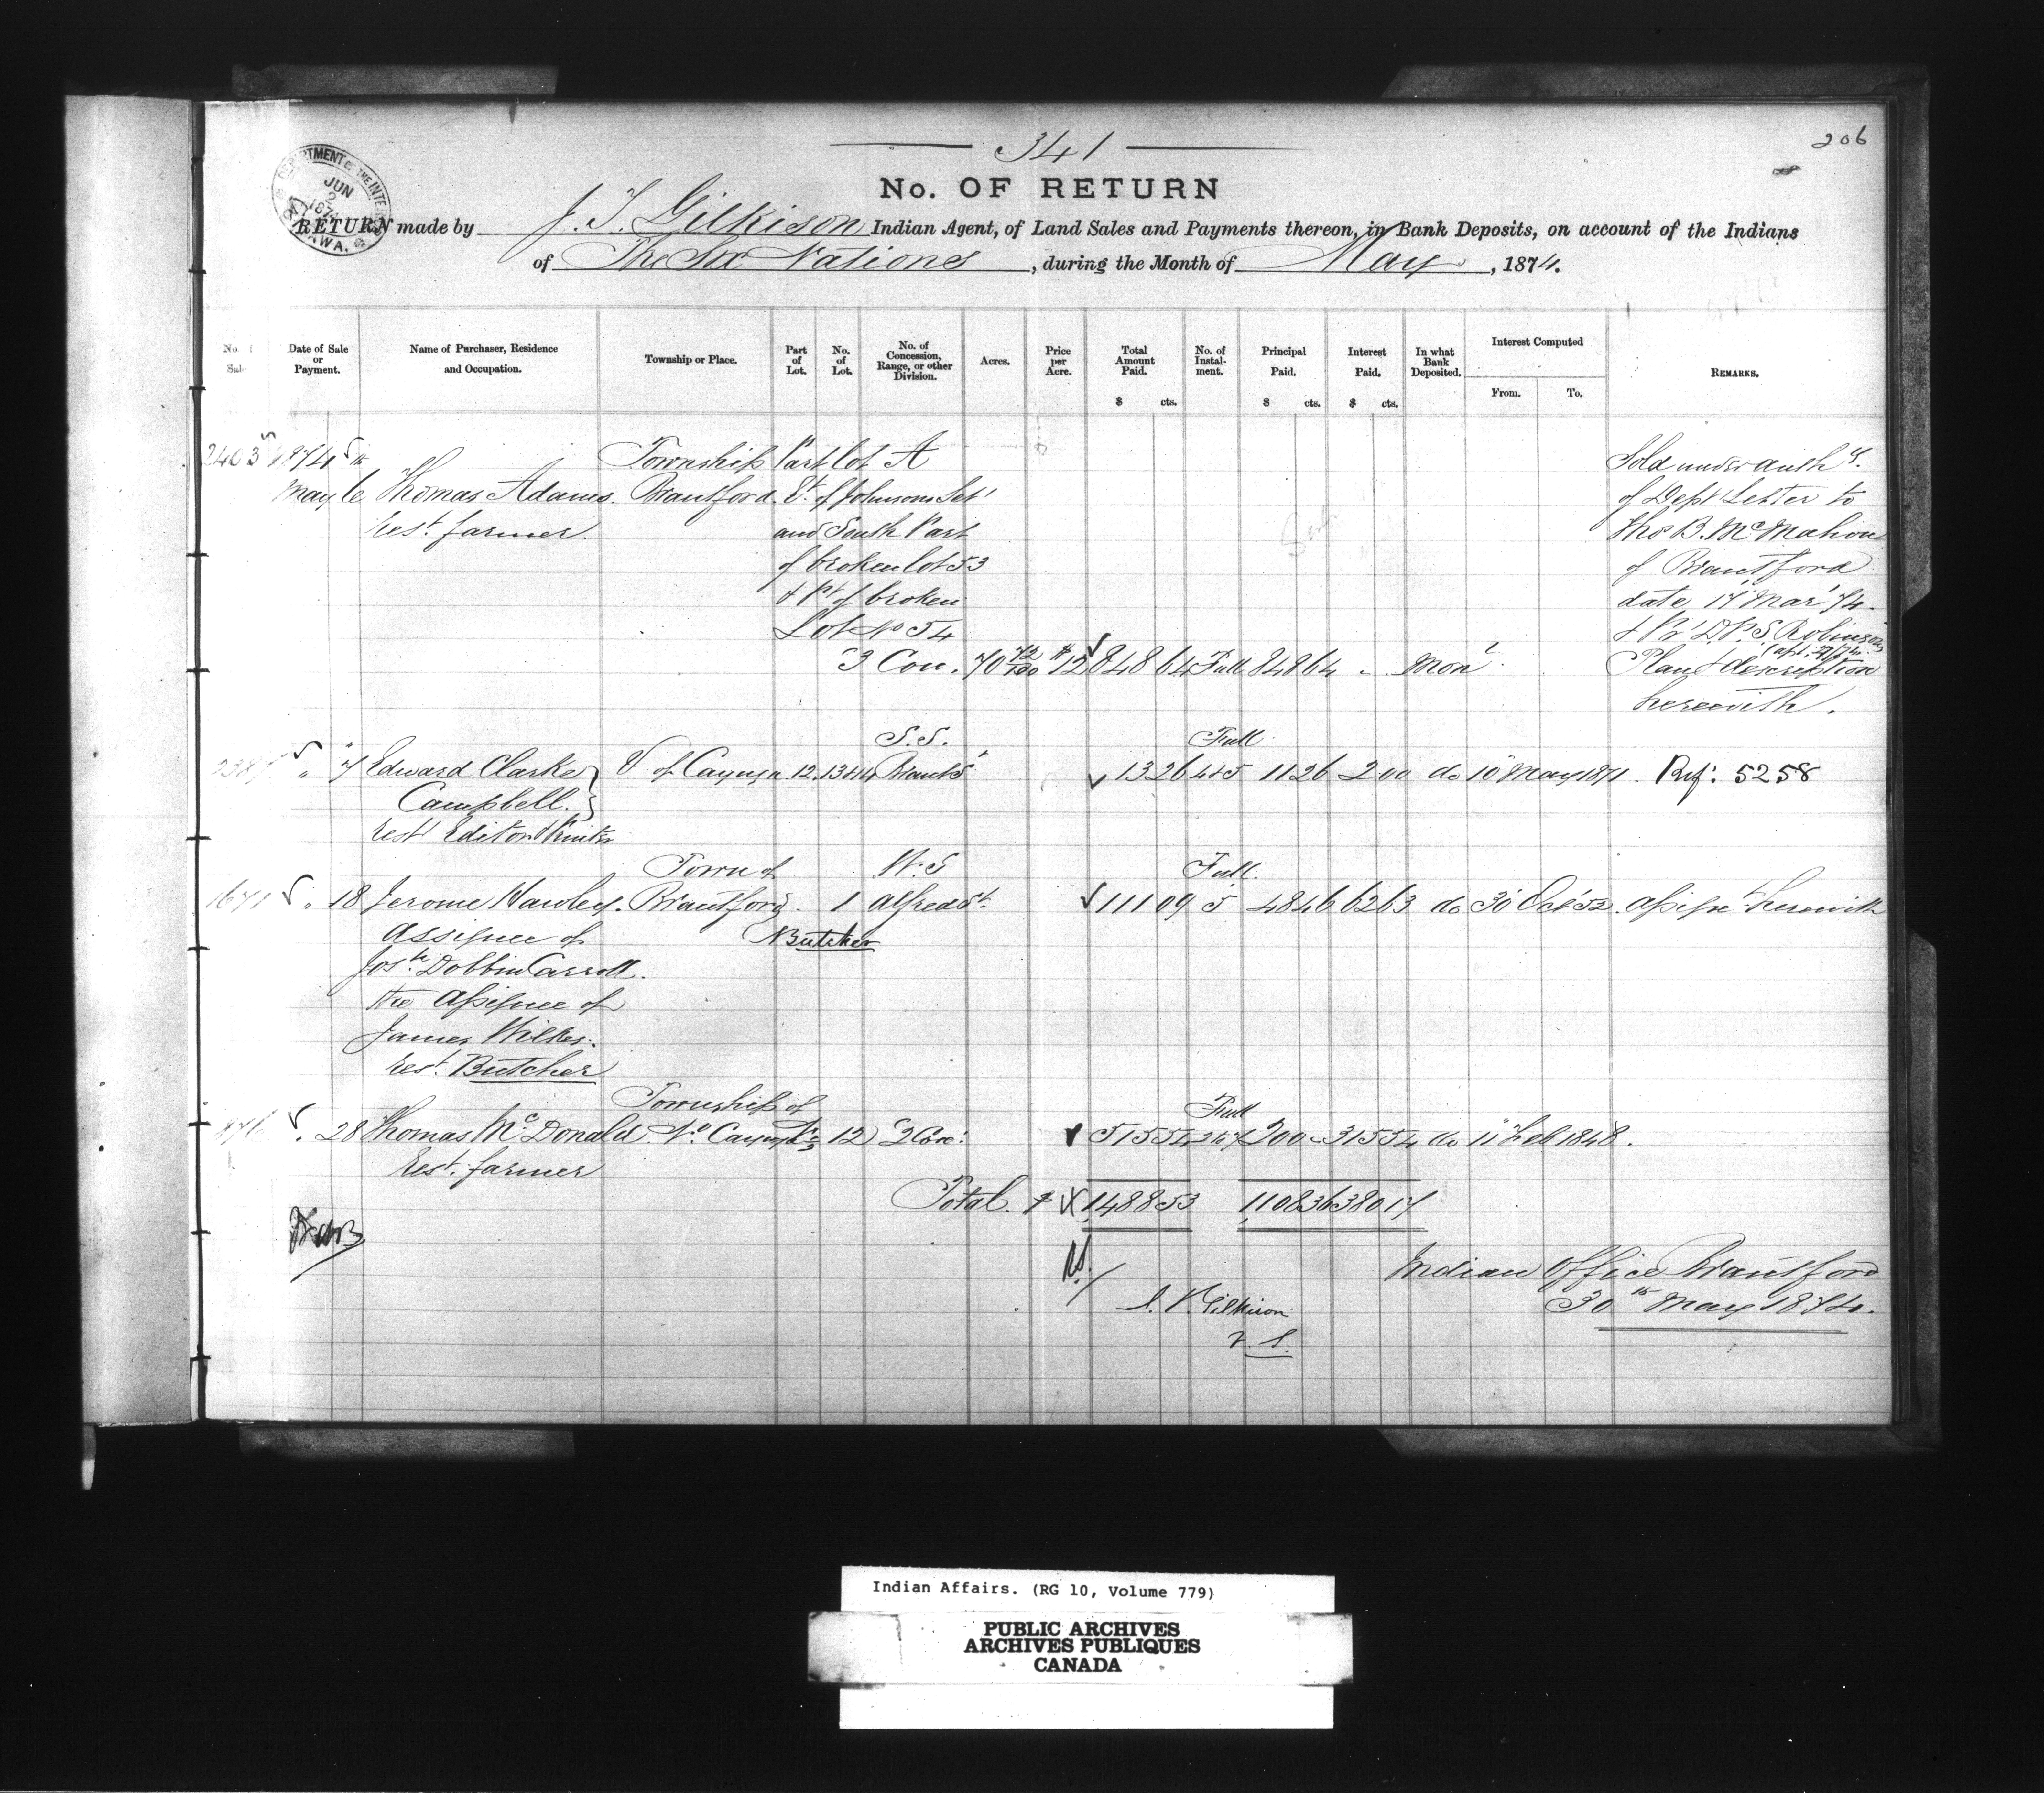 341
206
No. OF RETURN
DEPARTMENT OF THE INTERIOR
JUN
2
1874
OTTAWA.
RETURN made by J. T. Gilkison Indian Agent, of Land Sales and Payments thereon, in Bank Deposits, on account of the Indians
of The Six Nations, during the Month of May, 1874.
No. of Sale Date of Sale or Payment. Name of Purchaser, Residence and Occupation. Township or Place. Part of Lot. No. of Lot. No. of Concession, Range, or other Division. Acres. Price per Acre. Total Amount Paid. $ cts. No. of Instalment. Principal Paid. $ cts. Interest Paid. $ cts. In what Bank Deposited. Interest Computed From. To. REMARKS.
2403 1874 Township Part lot A Sold under authy.
May Thomas Adams. Brantford. Et. of Johnson Set' of Dept Letter to
Rest. farmer. and South Part Tho B. McMahon
of broken lot 53 of Brantford
& Pt of broken date, 17 Mar' 74.
Lot No 54 & Pr D.P.S. Robinson
3 Con. 70 72/100 $12 848 64 Full 848 64 " Mon' Plan & description
herewith.
S.S. Full
" 7 Edward Clarke of Cayuga 12. 13&14 Brant S' 13 26 4&5 11 26 2 00 do 10 May 1871. Ref: 5258
Campbell.
Rest Editor & Printer
Town of W.S Full.
1671 " 18 Jerome Hawley. Brantford. 1 Alfred St. 111 09 5 48 46 62 63 do 30 Oct '52. Assignt herewith
Assignee of Butcher
Josh. Dobbin Carroll.
the Assignee of
James Wilkes.
Rest. Butcher
Township of Full
" 28 Thomas McDonald. No. Cayuga 12 2 Con: 515 54 200 " 315 54 do 11 Feb 1848.
Rest. farmer
Total. $ 1,488 53 1,108 36 380 17
Indian Office Brantford
30th May 1874.
J. T. Gilkison
V. S.
Indian Affairs. (RG 10, Volume 779)
PUBLIC ARCHIVES
ARCHIVES PUBLIQUES
CANADA